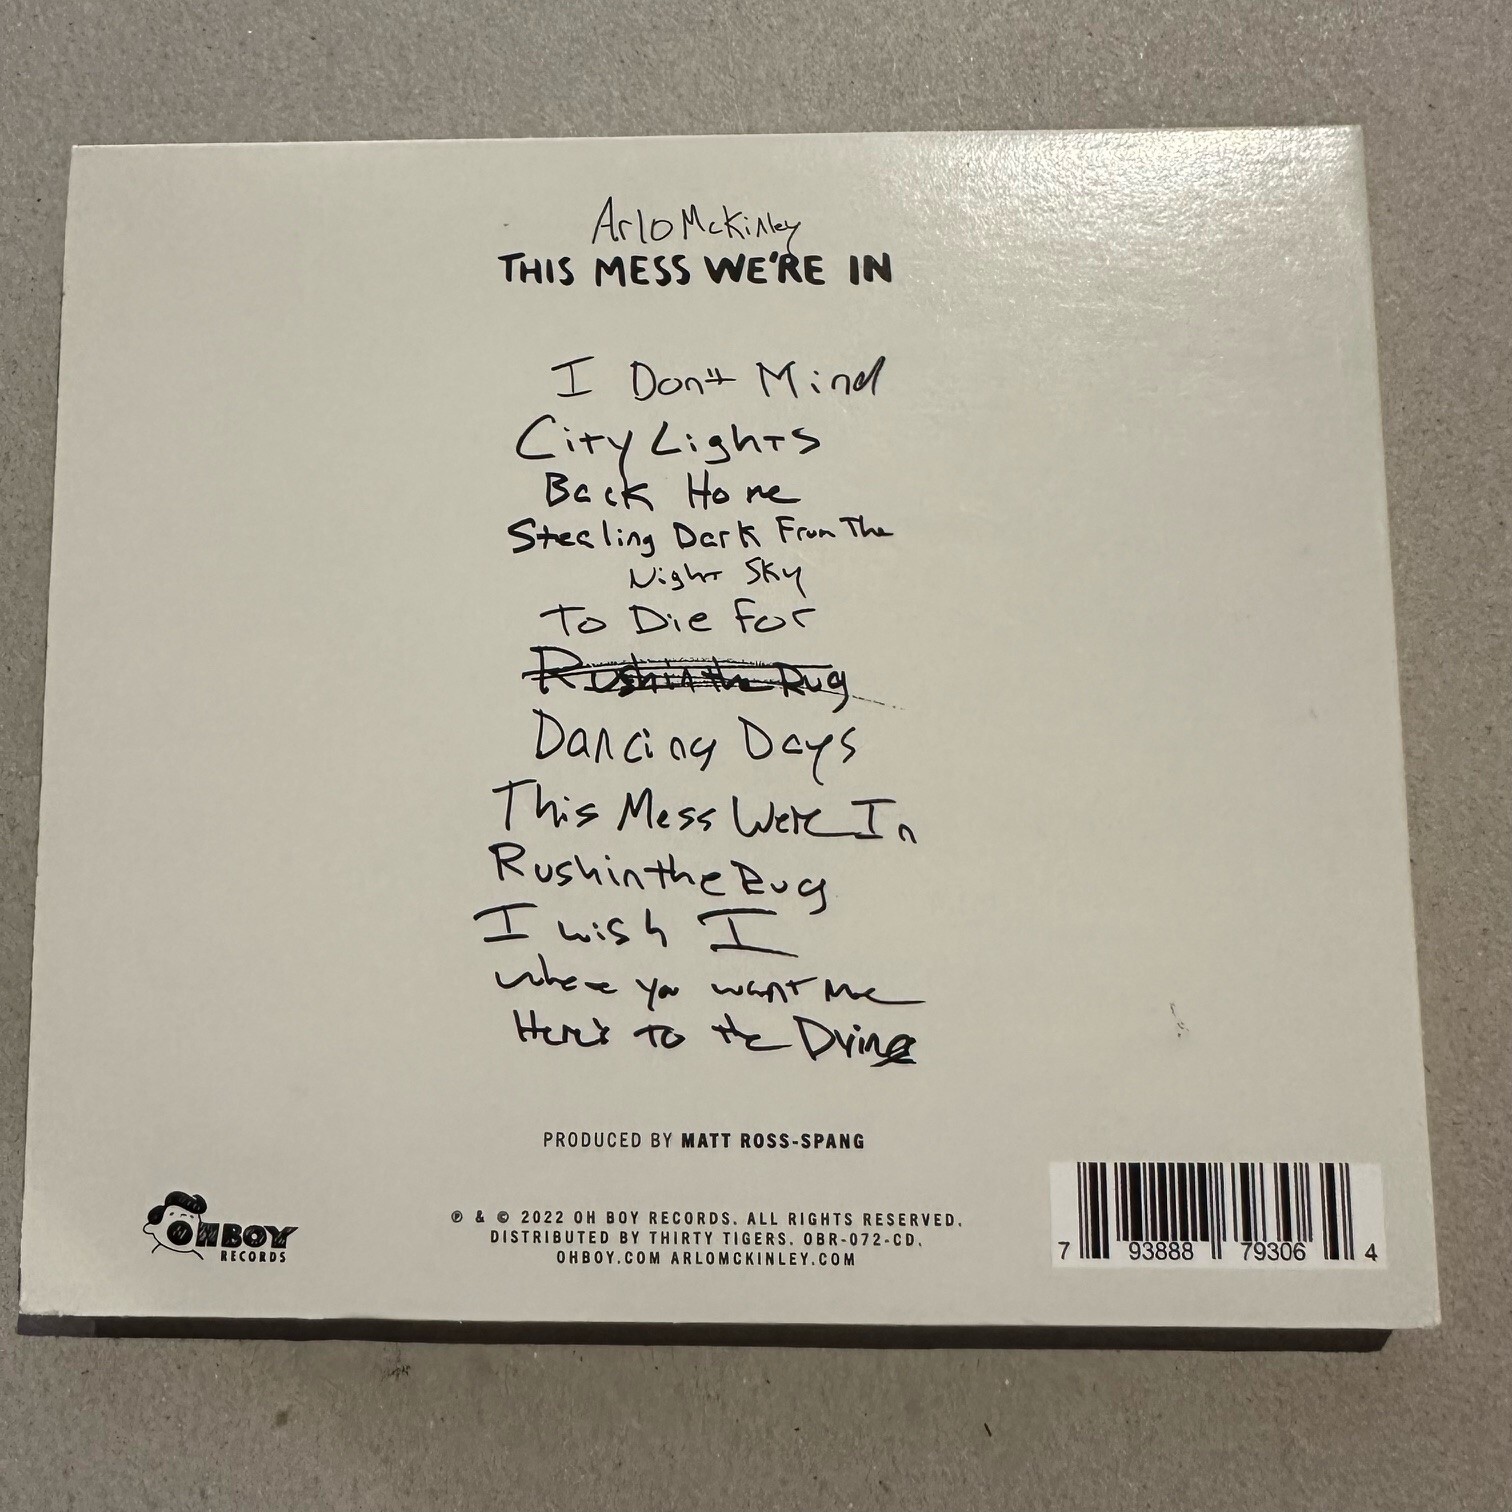 Arlo McKinley
THIS MESS WE'RE IN
I Don't Mind
City Lights
Back Home
Stealing Dark From The
Night Sky
To Die For
Rushintherug
Dancing Days
This Mess We're In
Rushintherug
I wish I
Where you want me
Here's to the Dying
PRODUCED BY MATT ROSS-SPANG
OH BOY
RECORDS
℗ & © 2022 OH BOY RECORDS. ALL RIGHTS RESERVED.
DISTRIBUTED BY THIRTY TIGERS. OBR-072-CD.
OHBOY.COM ARLOMCKINLEY.COM
7 93888 79306 4